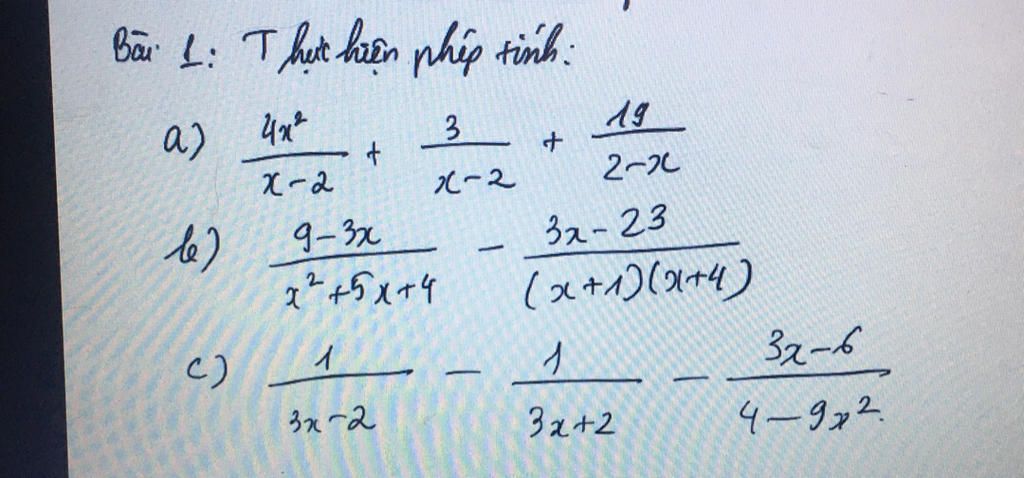 Bài 1: Thực hiện phép tính:
a) 4x²/(x-2) + 3/(x-2) + 19/(2-x)
b) (9-3x)/(x²+5x+4) - (3x-23)/((x+1)(x+4))
c) 1/(3x-2) - 1/(3x+2) - (3x-6)/(4-9x²)